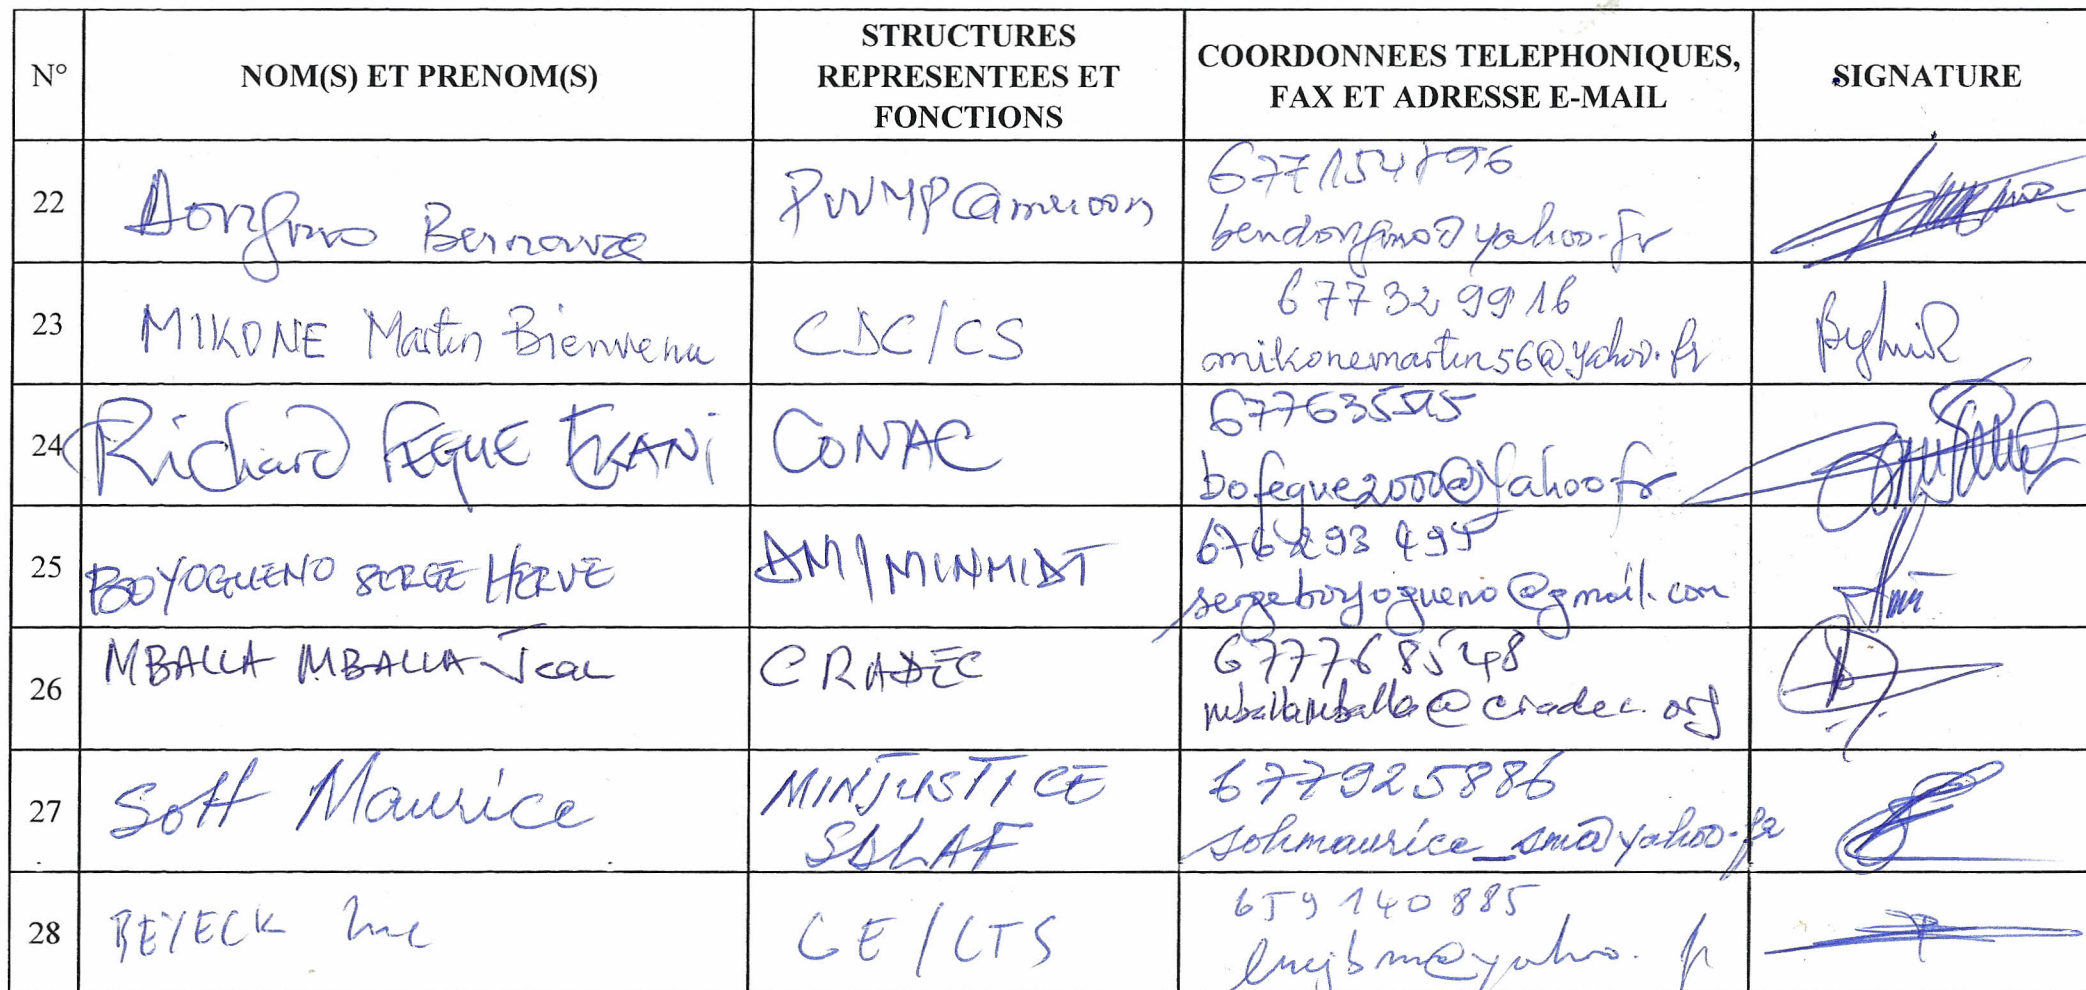 N° NOM(S) ET PRENOM(S) STRUCTURES REPRESENTEES ET FONCTIONS COORDONNEES TELEPHONIQUES, FAX ET ADRESSE E-MAIL SIGNATURE
22 Dongmo Bernard PWYP Cameroon 677154896
bendongmo@yahoo.fr
23 MIKONE Martin Bienvenu CDC/CS 677329916
mikonemartin56@yahoo.fr
24 Richard FEGUE EKANI CONAC 677635515
bofegue2000@Yahoo.fr
25 BOYOGUENO SERGE HERVE DM/MINMIDT 495
sergeboyogueno@gmail.com
26 MBALLA MBALLA Jean CRADEC 677768548
mballamballa@cradec.org
27 SOH Maurice MINJUSTICE 677925886
SDLAF sohmaurice_sm@yahoo.fr
28 BEYECK GE/CTS 659140885
@yahoo.fr